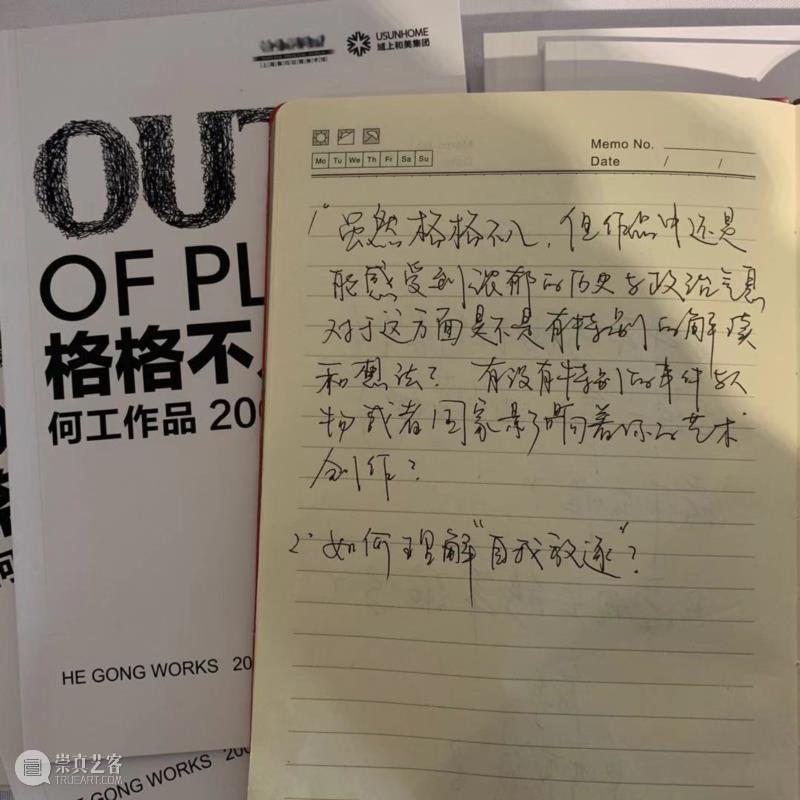 USUNHOME
域上和美集团
OUT
OF PL
格格不
何工作品 200
HE GONG WORKS 20
HE GONG WORKS 200
何
Memo No.
Date / /
Mo Tu We Th Fr Sa Su
1° 虽然格格不入，但作品中还是
能感受到浓郁的历史与政治气息
对于这方面是不是有特别的解读
和想法？有没有特别的事件或人
物或者国家影响着你的艺术
创作？
2° 如何理解“自我放逐”？
崇真艺客
TRUEART.COM